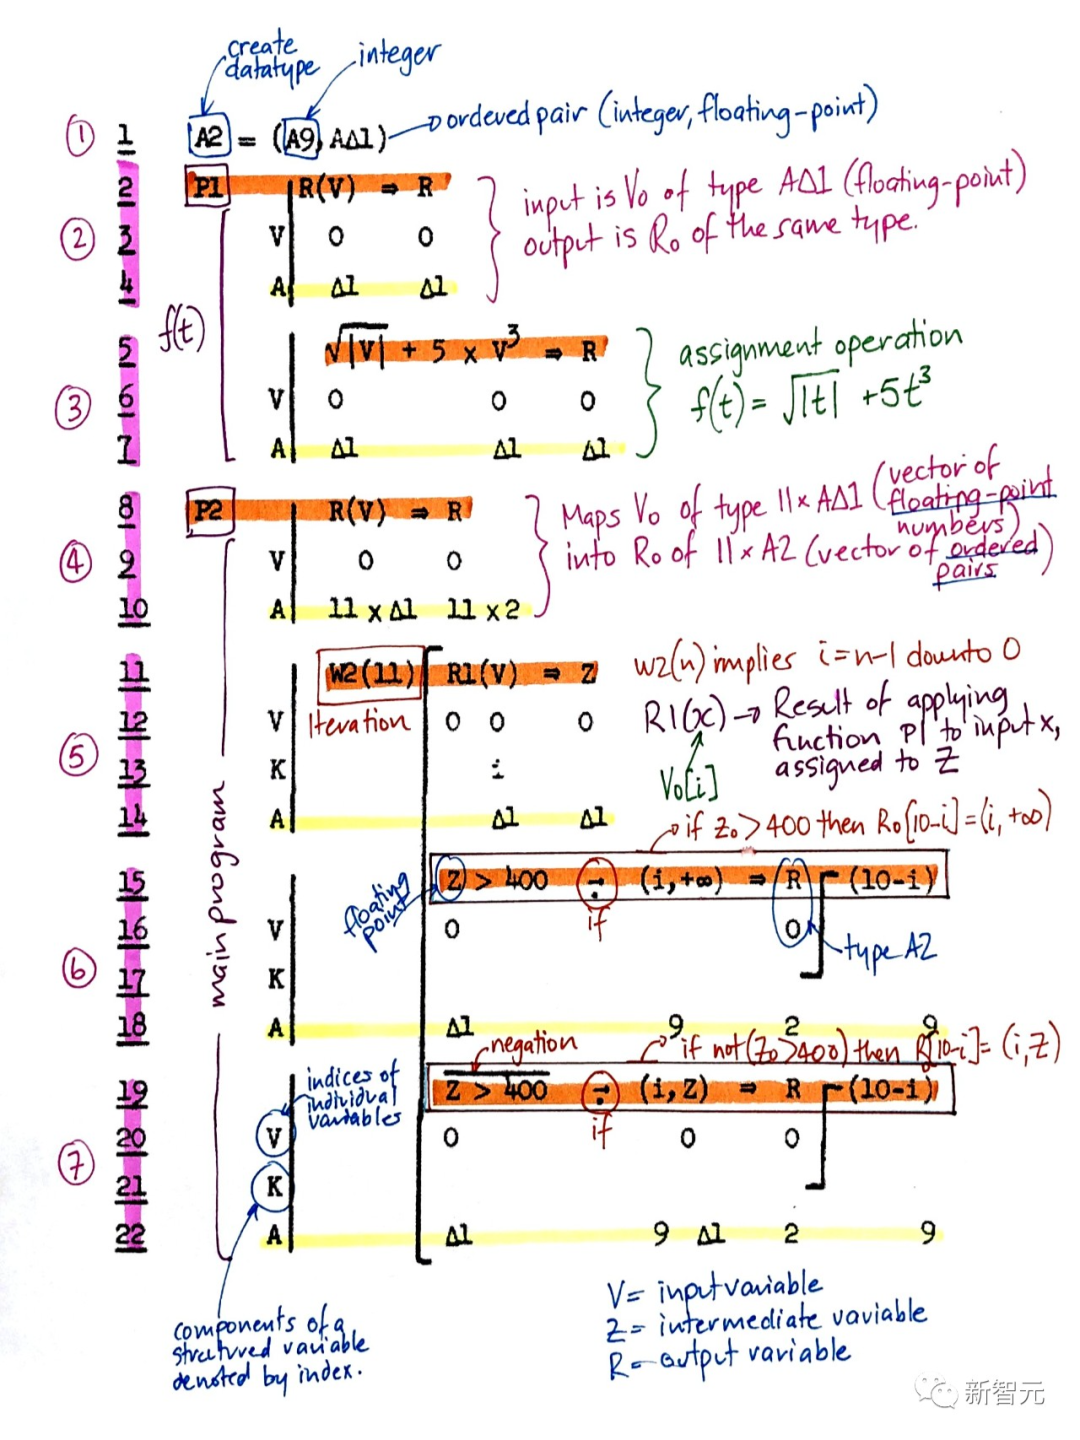 create
datatype
integer
① 1 A2 = (A9, AΔ1)
ordered pair (integer, floating-point)
2 P1 R(V) ⇒ R
② 3 V 0 0
4 A Δ1 Δ1
input is V₀ of type AΔ1 (floating-point)
output is R₀ of the same type.
f(t)
5 √|V| + 5 × V³ ⇒ R
③ 6 V 0 0 0
7 A Δ1 Δ1 Δ1
assignment operation
f(t) = √|t| +5t³
8 P2 R(V) ⇒ R
④ 9 V 0 0
10 A 11 x Δ1 11 x 2
Maps V₀ of type 11× AΔ1 (vector of
floating-point
numbers)
into R₀ of 11× A2 (vector of ordered
pairs)
main program
11 W2(11) R1(V) ⇒ Z
12 V 0 0 0
Iteration
⑤ 13 K i
14 A Δ1 Δ1
W2(n) implies i=n-1 downto 0
R1(x) → Result of applying
function P1 to input x,
assigned to Z
V₀[i]
if Z₀>400 then R₀[10-i]=(i,+∞)
15 Z > 400 ⇁ (i,+∞) ⇒ R (10-i)
16 V 0 0
floating
point
if
type A2
⑥ 17 K
18 A Δ1 9 2 9
negation
if not(Z₀>400) then R[10-i]= (i,Z)
19 Z > 400 ⇁ (i,Z) ⇒ R (10-i)
indices of
individual
variables
20 V 0 0 0
if
⑦ 21 K
22 A Δ1 9 Δ1 2 9
components of a
structured variable
denoted by index.
V= input variable
Z= intermediate variable
R= output variable
新智元